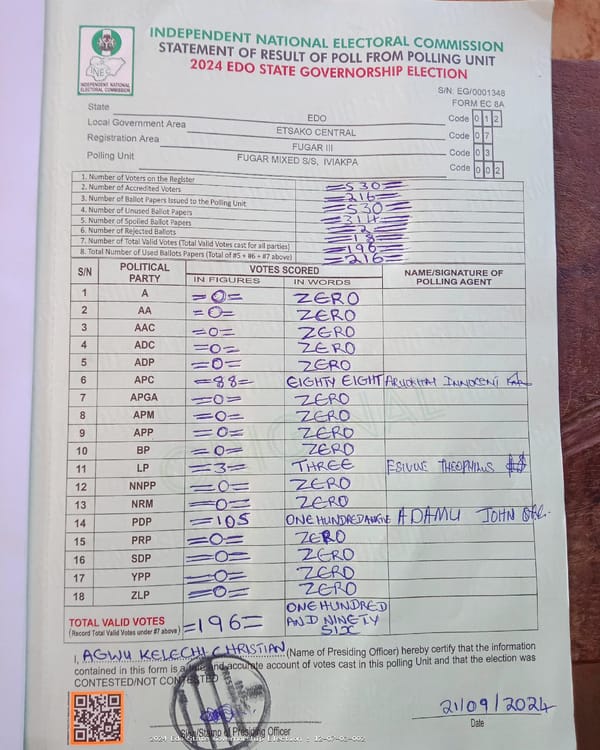 INDEPENDENT NATIONAL ELECTORAL COMMISSION
STATEMENT OF RESULT OF POLL FROM POLLING UNIT
2024 EDO STATE GOVERNORSHIP ELECTION
INEC
INDEPENDENT NATIONAL ELECTORAL COMMISSION
S/N: EG/0001348
FORM EC 8A
State EDO Code 0 1 2
Local Government Area ETSAKO CENTRAL Code 0 7
Registration Area FUGAR III Code 0 3
Polling Unit FUGAR MIXED S/S, IVIAKPA Code 0 0 2
1. Number of Voters on the Register =530=
2. Number of Accredited Voters =216=
3. Number of Ballot Papers Issued to the Polling Unit =530=
4. Number of Unused Ballot Papers =314=
5. Number of Spoiled Ballot Papers =2=
6. Number of Rejected Ballots =18=
7. Number of Total Valid Votes (Total Valid Votes cast for all parties) =196=
8. Total Number of Used Ballots Papers (Total of #5 + #6 + #7 above) =216=
S/N POLITICAL PARTY VOTES SCORED NAME/SIGNATURE OF POLLING AGENT
IN FIGURES IN WORDS
1 A =0= ZERO
2 AA =0= ZERO
3 AAC =0= ZERO
4 ADC =0= ZERO
5 ADP =0= ZERO
6 APC =88= EIGHTY EIGHT INNOCENT
7 APGA =0= ZERO
8 APM =0= ZERO
9 APP =0= ZERO
10 BP =0= ZERO
11 LP =3= THREE THEOPHILUS
12 NNPP =0= ZERO
13 NRM =0= ZERO
14 PDP =105 ONE HUNDRED ADAMU JOHN
15 PRP =0= ZERO
16 SDP =0= ZERO
17 YPP =0= ZERO
18 ZLP =0= ZERO
TOTAL VALID VOTES =196= ONE HUNDRED AND NINETY SIX
(Record Total Valid Votes under #7 above)
I, AGWU KELECHI CHRISTIAN (Name of Presiding Officer) hereby certify that the information
contained in this form is a true and accurate account of votes cast in this polling Unit and that the election was
CONTESTED/NOT CONTESTED
21/09/2024
Sign/Stamp of Presiding Officer Date
2024 Edo State Governorship Election - 12-07-03-002